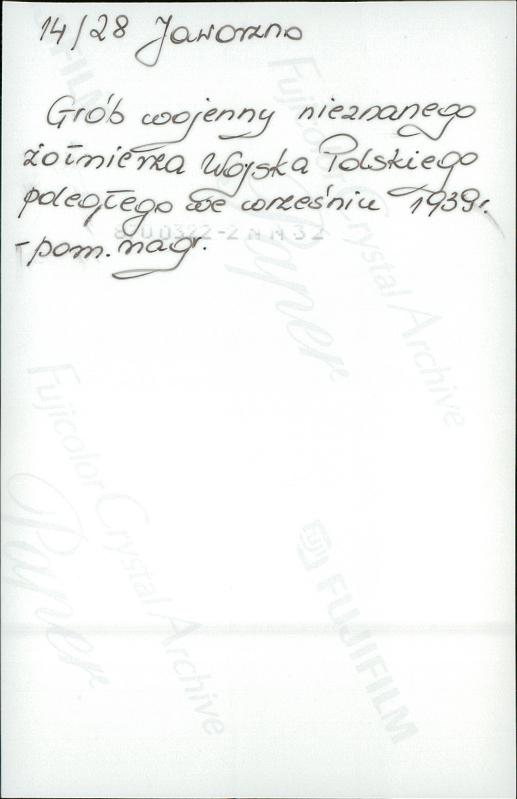 14/28 Jaworzno
Grób wojenny nieznanego
żołnierza Wojska Polskiego
poległego we wrześniu 1939r.
- pom. nagr.
Fujicolor Crystal Archive
Paper
FUJIFILM
Fujicolor Crystal Archive
Paper
FUJIFILM